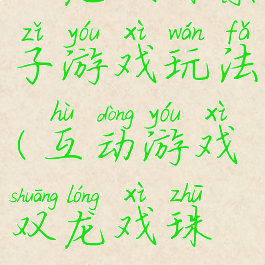 zǐ yóu xì wán fǎ
子游戏玩法
hù dòng yóu xì
(互动游戏
shuāng lóng xì zhū
双龙戏珠